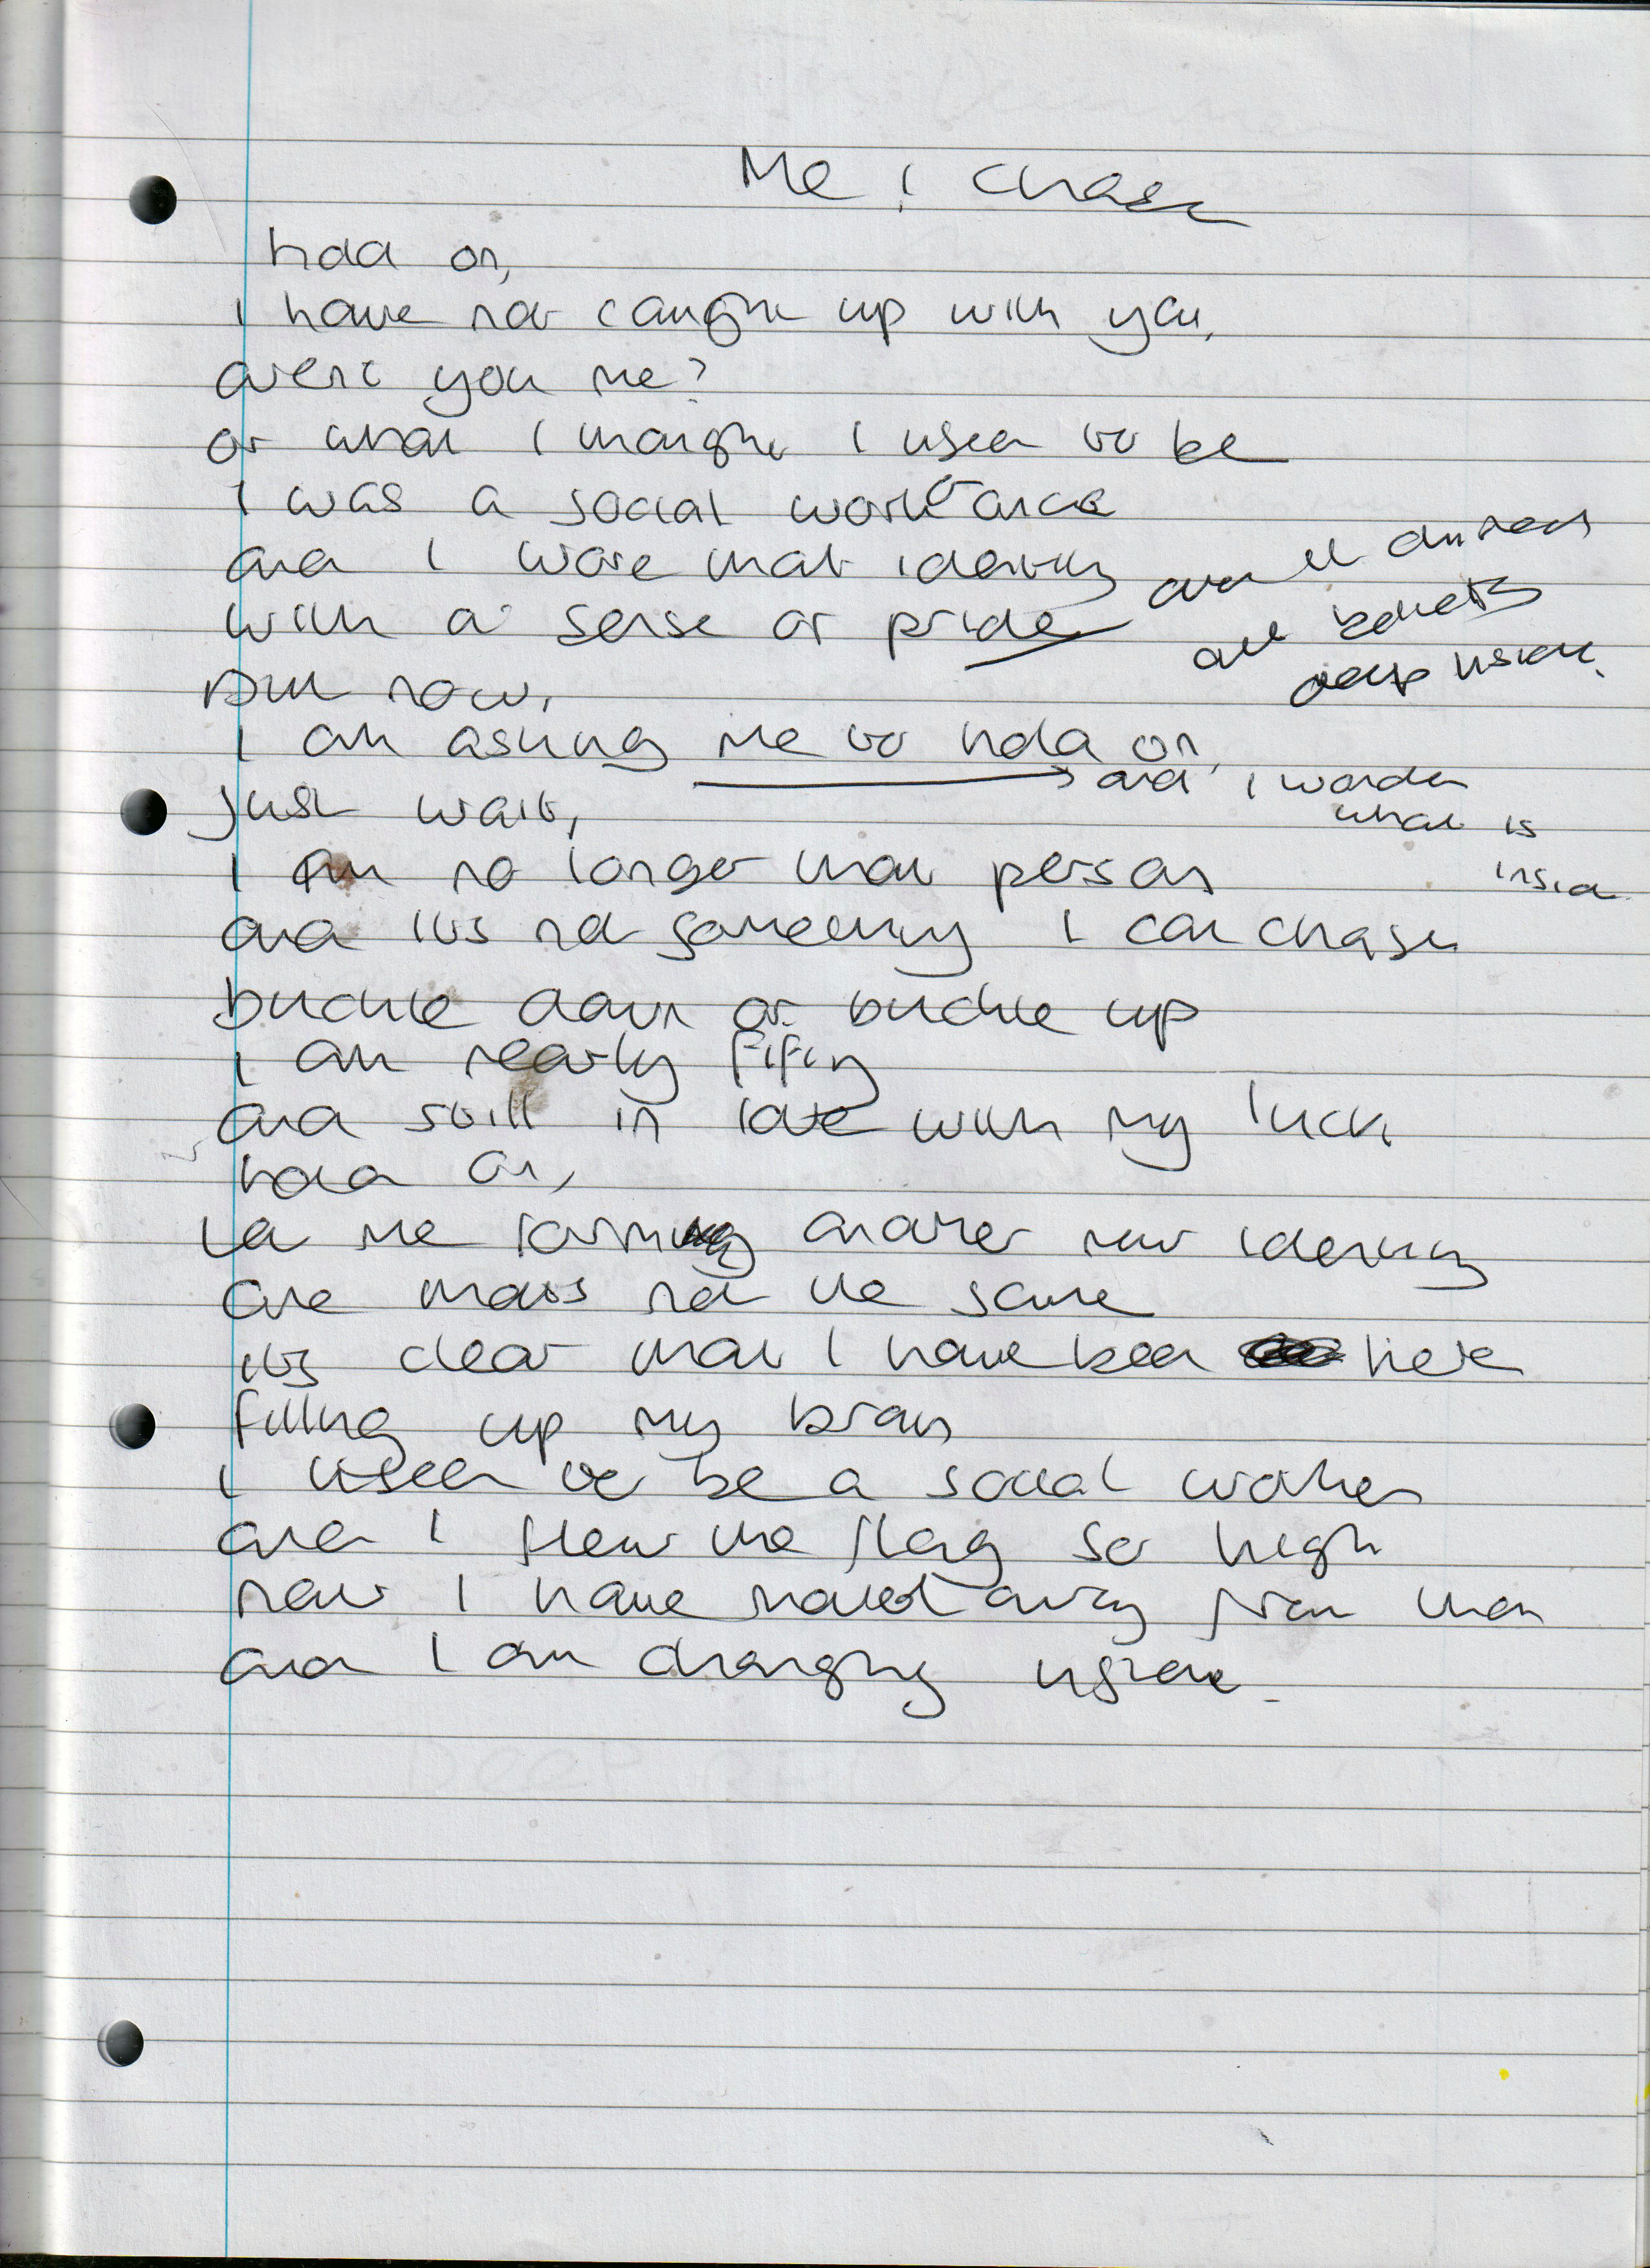 Me I chase
hold on,
I have not caught up with you,
arent you me?
or what I thought I used to be
I was a social worker once
and I wore that identity
with a sense of pride
over all
all beliefs
deep inside.
But now,
I am asking me to hold on,
and I wonder
what is
inside
just wait,
I am no longer that person
and its not something I can chase
buckle down or buckle up
I am nearly fifty
and still in love with my luck
hold on,
let me form another new identity
one thats not the same
its clear that I have been here
filling up my brain
I used to be a social worker
and I flew the flag so high
now I have moved away from that
and I am changing inside.